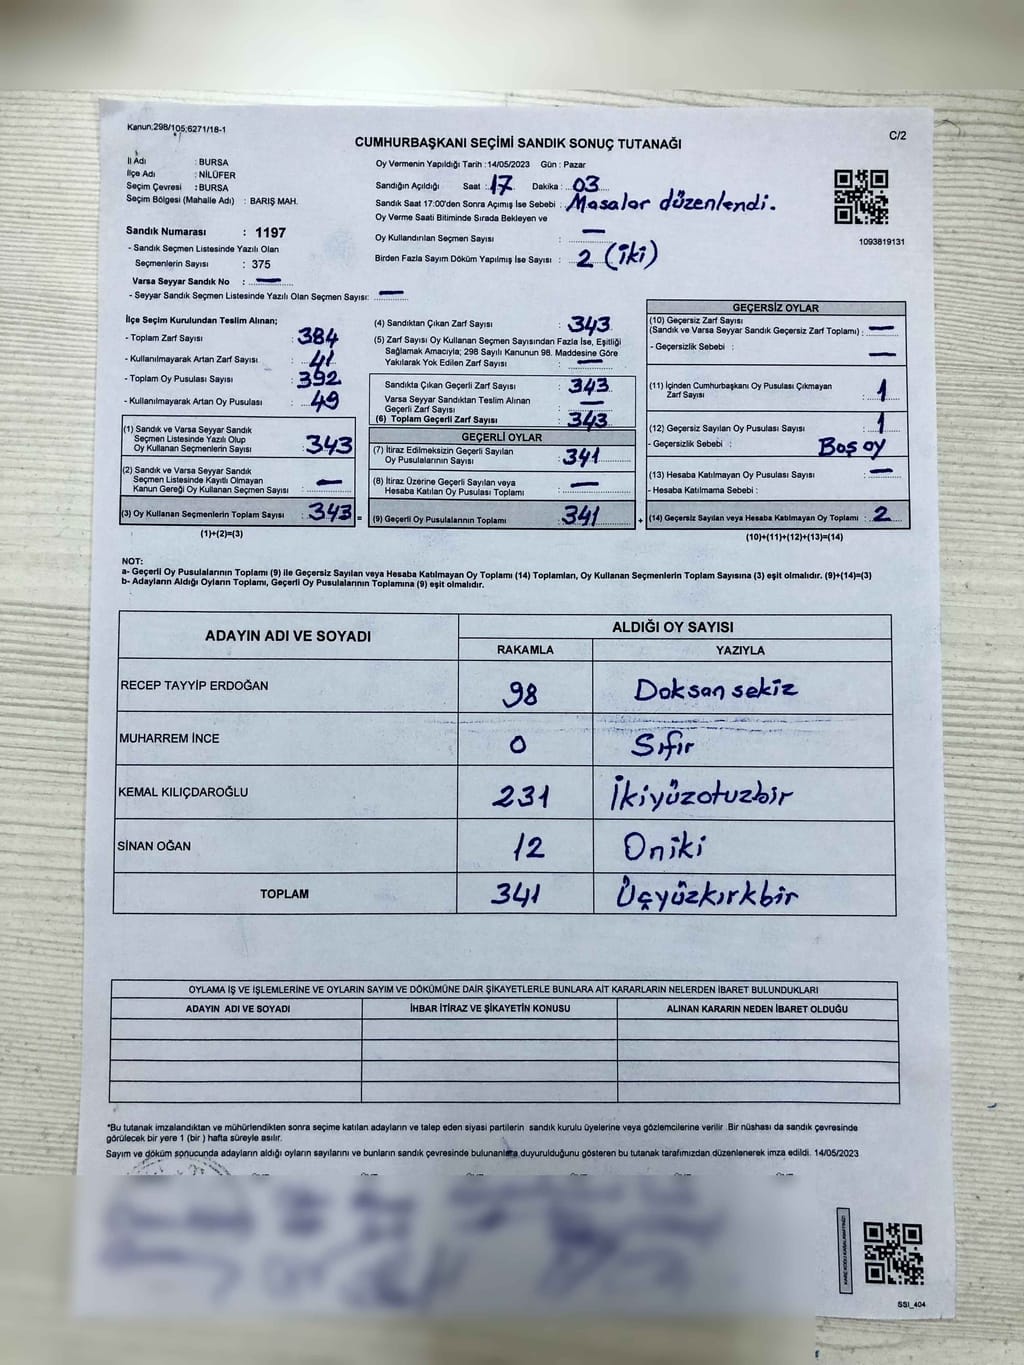 Kanun:298/105;6271/18-1
C/2
CUMHURBAŞKANI SEÇİMİ SANDIK SONUÇ TUTANAĞI
İl Adı : BURSA
İlçe Adı : NİLÜFER
Seçim Çevresi : BURSA
Seçim Bölgesi (Mahalle Adı) : BARIŞ MAH.
Sandık Numarası : 1197
- Sandık Seçmen Listesinde Yazılı Olan
Seçmenlerin Sayısı : 375
Varsa Seyyar Sandık No : —
- Seyyar Sandık Seçmen Listesinde Yazılı Olan Seçmen Sayısı: —
Oy Vermenin Yapıldığı Tarih :14/05/2023 Gün : Pazar
Sandığın Açıldığı Saat : 17 Dakika : 03
Sandık Saat 17:00'den Sonra Açımış İse Sebebi : Masalar düzenlendi.
Oy Verme Saati Bitiminde Sırada Bekleyen ve
Oy Kullandırılan Seçmen Sayısı : —
Birden Fazla Sayım Döküm Yapılmış İse Sayısı : 2 (iki)
1093819131
İlçe Seçim Kurulundan Teslim Alınan;
- Toplam Zarf Sayısı : 384
- Kullanılmayarak Artan Zarf Sayısı : 41
- Toplam Oy Pusulası Sayısı : 392
- Kullanılmayarak Artan Oy Pusulası : 49
(1) Sandık ve Varsa Seyyar Sandık
Seçmen Listesinde Yazılı Olup
Oy Kullanan Seçmenlerin Sayısı : 343
(2) Sandık ve Varsa Seyyar Sandık
Seçmen Listesinde Kayıtlı Olmayan
Kanun Gereği Oy Kullanan Seçmen Sayısı : —
(3) Oy Kullanan Seçmenlerin Toplam Sayısı : 343 =
(1)+(2)=(3)
(4) Sandıktan Çıkan Zarf Sayısı : 343
(5) Zarf Sayısı Oy Kullanan Seçmen Sayısından Fazla İse, Eşitliği
Sağlamak Amacıyla; 298 Sayılı Kanunun 98. Maddesine Göre
Yakılarak Yok Edilen Zarf Sayısı : —
Sandıkta Çıkan Geçerli Zarf Sayısı : 343
Varsa Seyyar Sandıktan Teslim Alınan
Geçerli Zarf Sayısı : —
(6) Toplam Geçerli Zarf Sayısı : 343
GEÇERLİ OYLAR
(7) İtiraz Edilmeksizin Geçerli Sayılan
Oy Pusulalarının Sayısı : 341
(8) İtiraz Üzerine Geçerli Sayılan veya
Hesaba Katılan Oy Pusulası Toplamı : —
(9) Geçerli Oy Pusulalarının Toplamı : 341 +
GEÇERSİZ OYLAR
(10) Geçersiz Zarf Sayısı
(Sandık ve Varsa Seyyar Sandık Geçersiz Zarf Toplamı) : —
- Geçersizlik Sebebi : —
(11) İçinden Cumhurbaşkanı Oy Pusulası Çıkmayan
Zarf Sayısı : 1
(12) Geçersiz Sayılan Oy Pusulası Sayısı : 1
- Geçersizlik Sebebi : Boş oy
(13) Hesaba Katılmayan Oy Pusulası Sayısı : —
- Hesaba Katılmama Sebebi :
(14) Geçersiz Sayılan veya Hesaba Katılmayan Oy Toplamı : 2
(10)+(11)+(12)+(13)=(14)
NOT:
a- Geçerli Oy Pusulalarının Toplamı (9) ile Geçersiz Sayılan veya Hesaba Katılmayan Oy Toplamı (14) Toplamları, Oy Kullanan Seçmenlerin Toplam Sayısına (3) eşit olmalıdır. (9)+(14)=(3)
b- Adayların Aldığı Oyların Toplamı, Geçerli Oy Pusulalarının Toplamına (9) eşit olmalıdır.
ADAYIN ADI VE SOYADI ALDIĞI OY SAYISI
RAKAMLA YAZIYLA
RECEP TAYYİP ERDOĞAN 98 Doksan sekiz
MUHARREM İNCE 0 Sıfır
KEMAL KILIÇDAROĞLU 231 İkiyüzotuzbir
SİNAN OĞAN 12 Oniki
TOPLAM 341 Üçyüzkırkbir
OYLAMA İŞ VE İŞLEMLERİNE VE OYLARIN SAYIM VE DÖKÜMÜNE DAİR ŞİKAYETLERLE BUNLARA AİT KARARLARIN NELERDEN İBARET BULUNDUKLARI
ADAYIN ADI VE SOYADI İHBAR İTİRAZ VE ŞİKAYETİN KONUSU ALINAN KARARIN NEDEN İBARET OLDUĞU
*Bu tutanak imzalandıktan ve mühürlendikten sonra seçime katılan adayların ve talep eden siyasi partilerin sandık kurulu üyelerine veya gözlemcilerine verilir .Bir nüshası da sandık çevresinde
görülecek bir yere 1 (bir ) hafta süreyle asılır.
Sayım ve döküm sonucunda adayların aldığı oyların sayılarını ve bunların sandık çevresinde bulunanlara duyurulduğunu gösteren bu tutanak tarafımızdan düzenlenerek imza edildi. 14/05/2023
SSI_404